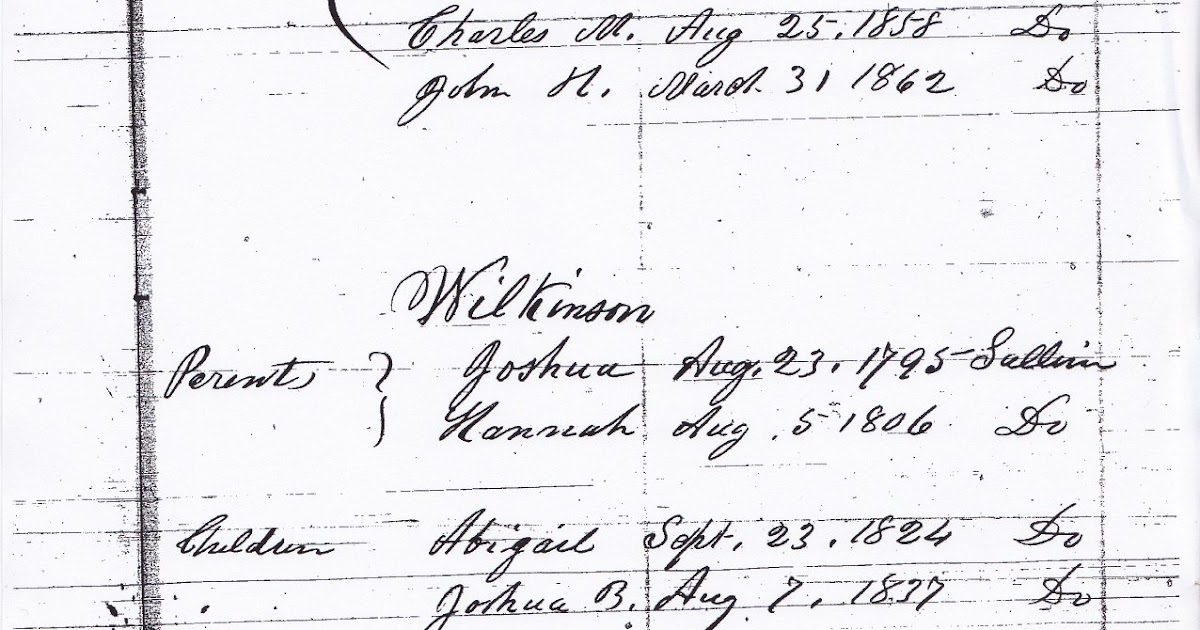 Charles M. Aug 25, 1858 Do
John H. March 31 1862 Do
Wilkinson
Perents } Joshua Aug. 23. 1795 Sullivn
Hannah Aug. 5 1806 Do
Children Abigail Sept. 23, 1824 Do
Joshua B. Aug 7, 1837 Do